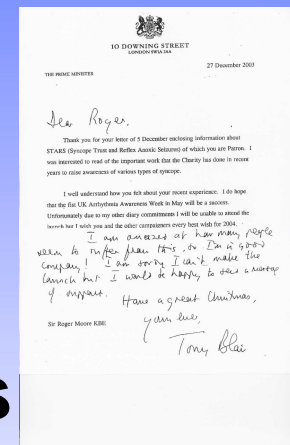 10 DOWNING STREET
LONDON SW1A 2AA
27 December 2003
THE PRIME MINISTER
Dear Roger,
Thank you for your letter of 5 December enclosing information about
STARS (Syncope Trust and Reflex Anoxic Seizures) of which you are Patron. I
was interested to read of the important work that the Charity has done in recent
years to raise awareness of various types of syncope.
I well understand how you felt about your recent experience. I do hope
that the fist UK Arrhythmia Awareness Week in May will be a success.
Unfortunately due to my other diary commitments I will be unable to attend the
launch but I wish you and the other campaigners every best wish for 2004.
I am amazed at how many people
seem to suffer from this, so I'm in good
company! I am sorry I can't make the
launch but I would be happy to send a message
of support. Have a great Christmas,
yours ever,
Tony Blair
Sir Roger Moore KBE
S